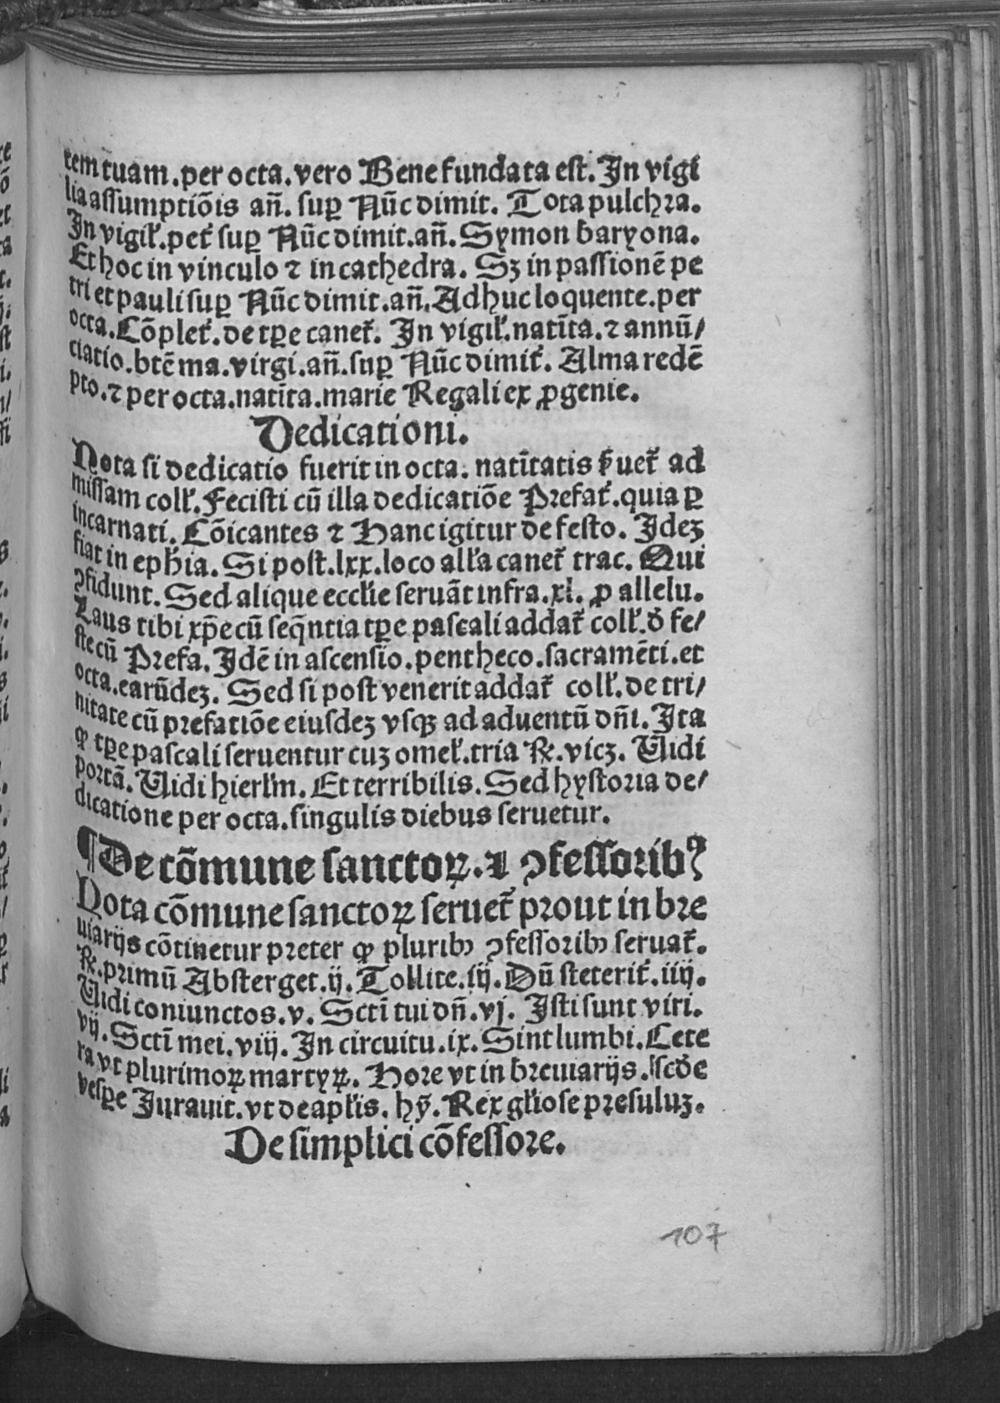 tem tuam.per octa.vero Bene fundata est. In vigi
lia assumptiõis añ. suꝑ Nũc dimit. Tota pulchꝛa.
In vigil̛.pet̛ suꝑ Nũc dimit.añ. Symon baryona.
Et hoc in vinculo ⁊ in cathedra. Sꝫ in passionẽ pe
tri et pauli suꝑ Nũc dimit.añ. Adhuc loquente.per
octa.Cõplet̛.de tꝑe canet̛. In vigil̛.natĩta.⁊ annũ/
ciatio.btẽ ma.virgi.añ.suꝑ Nũc dimit̛. Alma redẽ
pto.⁊ per octa.natĩta.marie Regali ex ꝓgenie.
Dedicationi.
Nota si dedicatio fuerit in octa. natĩtatis s̛uet̛ ad
missam coll̛.Fecisti cũ illa dedicatiõe Prefat̛.quia ꝑ
incarnati. Cõicantes ⁊ Hanc igitur de festo. Idez
fiat in eph̄ia. Si post.lxx.loco all̛a canet̛ trac. Qui
ꝯfidunt. Sed alique eccl̛ie seruãt infra.xl. ꝓ allelu.
Laus tibi xp̃e cũ seq̃ntia tꝑe pascali addat̛ coll̛.ð fe/
ste cũ Prefa. Idẽ in ascensio.pentheco.sacramẽti.et
octa.earũdeꝫ. Sed si post venerit addat̛ coll̛.de tri/
nitate cũ prefatiõe eiusdeꝫ vsqꝫ ad aduentũ dñi. Ita
ꝙ tꝑe pascali seruentur cuꝫ omel̛.tria ℟.vicꝫ. Uidi
portã. Uidi hierl̛m. Et terribilis. Sed hystoria de/
dicatione per octa.singulis diebus seruetur.
¶De cõmune sanctoꝝ.⁊ ꝯfessorib⁹
Nota cõmune sanctoꝝ seruet̛ prout in bre
uiarijs cõtinetur preter ꝙ pluribꝫ ꝯfessoribꝫ seruat̛.
℟.primũ Absterget.ij. Tollite.iij. Dũ steterit̛.iiij.
Uidi coniunctos.v. Sctĩ tui dñ.vj. Isti sunt viri.
vij. Sctĩ mei.viij. In circuitu.ix. Sint lumbi. Cete
ra vt plurimoꝝ martyꝝ. Hore vt in breuiarijs. scðe
vesꝑe Jurauit. vt de apl̛is. hỹ. Rex gl̛iose presuluꝫ.
De simplici cõfessore.
107